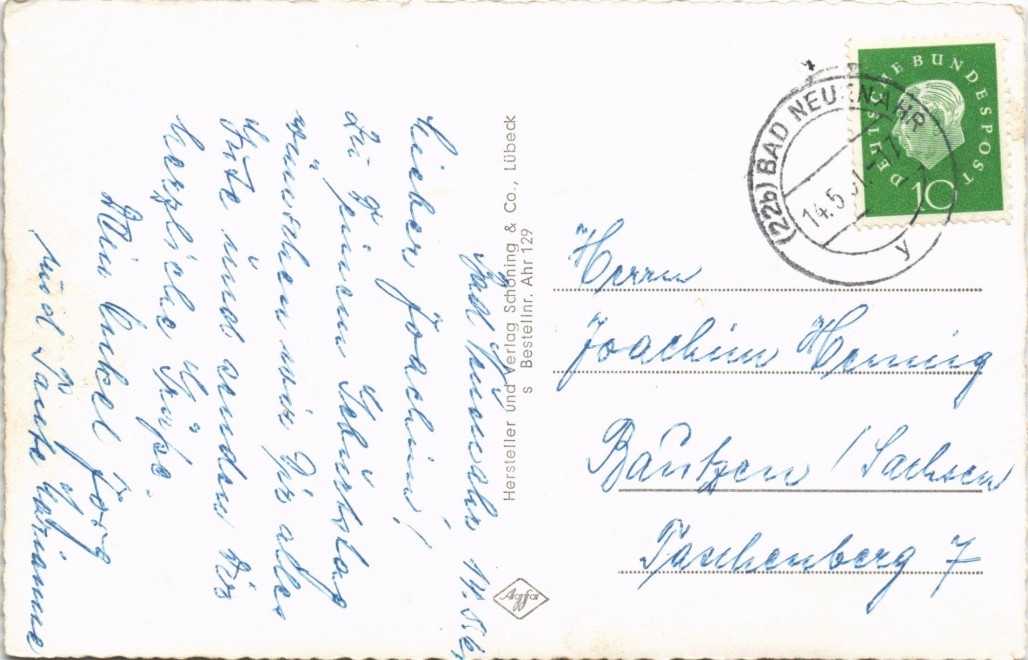 Bad Neuenahr 14.5.6
Lieber Joachim!
Zu Deinem Geburtstag
wünschen wir Dir alles
Gute und senden Dir
herzliche Grüße.
Dein Onkel Jörg
und Tante Marianne
Hersteller und Verlag Schöning & Co., Lübeck
s Bestellnr. Ahr 129
Agfa
DEUTSCHE BUNDESPOST
10
(22b) BAD NEUENAHR
14.5
y
Herrn
Joachim Henning
Bautzen / Sachsen
Taschenberg 7